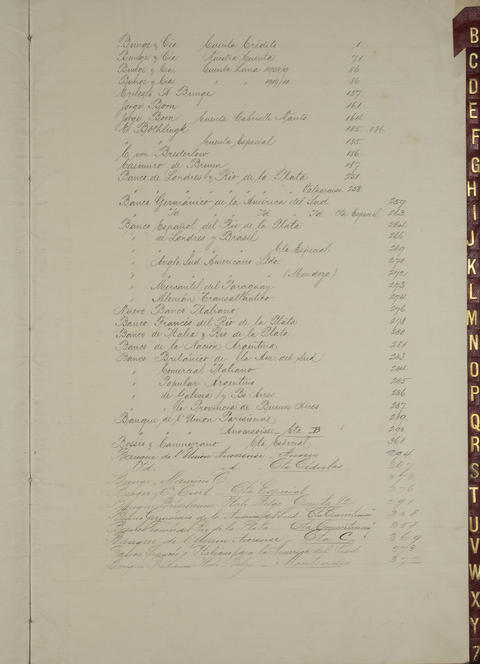 Bunge y Cia Cuenta Crédito 1
Bunge y Cia Nuestra Cuenta 71
Bunge y Cia Cuenta Lana 1908/9 86
Bunge y Cia " 1909/10 86
Ernesto A. Bunge 157
Jorge Born 161
Jorge Born Cuenta Gabrielle Nanto 164
E. Bothlingk 185 186
" Cuenta Especial 185
C. von Brederlow 186
Casimiro de Bruyn 187
Banco de Londres y Rio de la Plata 221
" " " " " " " Valparaiso 228
Banco Germánico de la América del Sud 259
" Id " Id " Id Cta Especial 263
Banco Español del Rio de la Plata 264
" de Londres y Brasil 266
" " " Cta Especial 269
" Anglo Sud Americano Ltdo 270
" " " " " (Mendoza) 272
" Mercantil del Paraguay 273
" Alemán Transatlántico 274
Nuevo Banco Italiano 276
Banco Francés del Rio de la Plata 278
Banco de Italia y Rio de la Plata 280
Banco de la Nación Argentina 281
Banco Británico de la Am. del Sud 283
" Comercial Italiano 284
" Popular Argentino 285
" de Galicia y Bs Aires 286
" de la Provincia de Buenos Aires 287
Banque de l'Union Parisienne 289
" " " Anversoise Cta B 290
Bossio y Camuyrano Cta Especial 361
Banque de l'Union Anversoise - Anvers 294
Id. d Cta Cédulas 367
Bunge, Mauricio
Cta Especial 376
Banco Germánico de la América del Sud 358
Rio de la Plata 358
Banque de l'Union Anversoise - Cta C 369
Banco Francés e Italiano para la América del Sud
Montevideo 372
B
C
D
E
F
G
H
I
J
K
L
M
N
O
P
Q
R
S
T
U
V
W
X
Y
Z